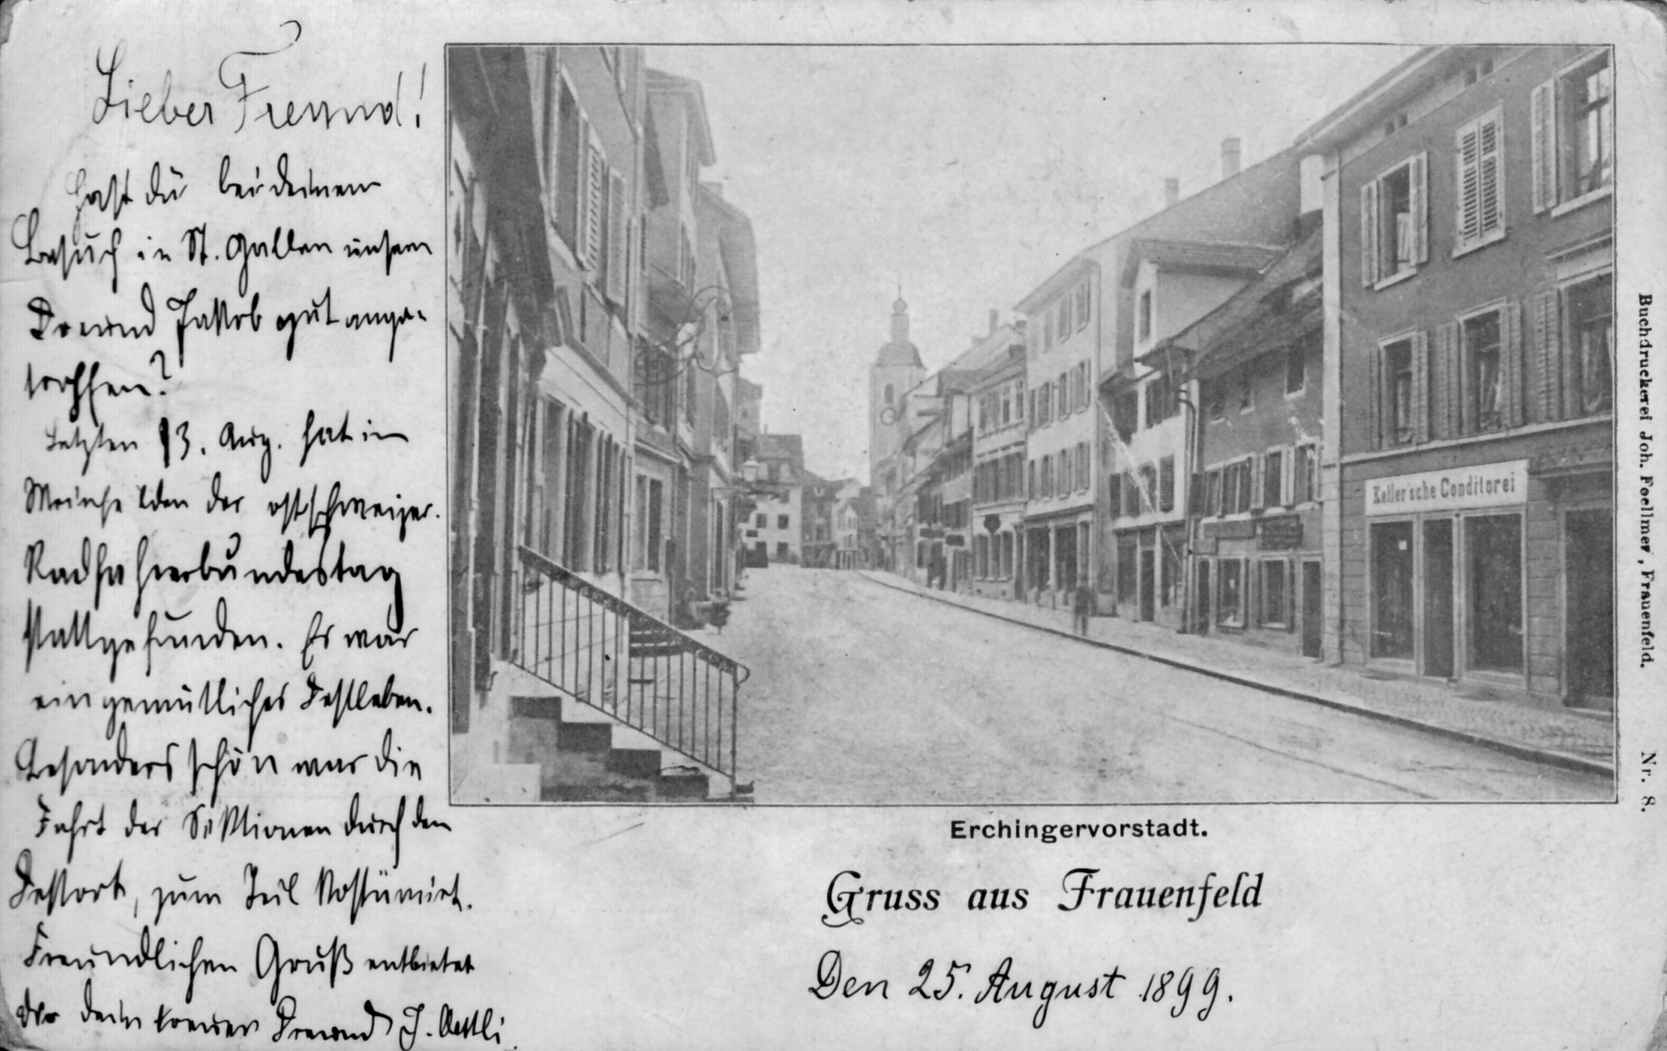 Lieber Freund!
Hast du bei deinem
Besuch in St. Gallen unsern
Freund Jakob gut ange-
troffen?
Letzten 13. Aug. hat in
der ostschweizer.
Radfahrerbundestag
stattgefunden. Es war
ein gemütliches Festleben.
Besonders schön war die
Fahrt der Sektionen durch den
Festort, zum Teil kostümirt.
Freundlichen Gruß entbietet
dir dein treuer Freund J.
Keller'sche Conditorei
Buchdruckerei Joh. Foellmer, Frauenfeld.
Nr. 8.
Erchingervorstadt.
Gruss aus Frauenfeld
Den 25. August 1899.